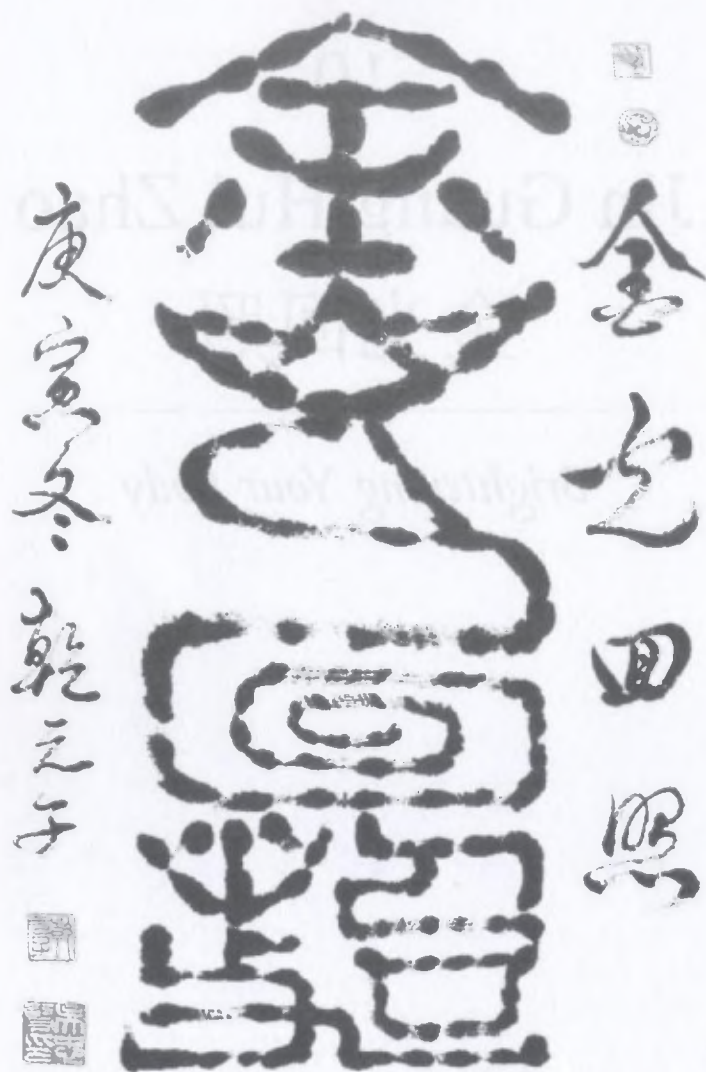 金光回照
金光回照
庚寅冬乾元子